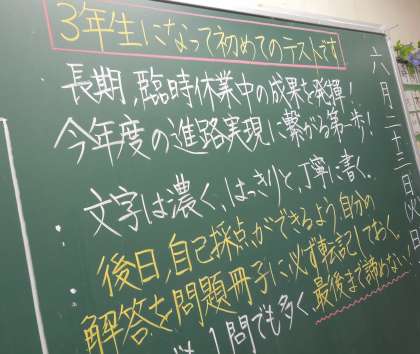 3年生になって初めてのテストです
長期、臨時休業中の成果を発揮!
今年度の進路実現に繋がる第一歩!
文字は濃く、はっきりと、丁寧に書く。
後日、自己採点ができるよう、自分の
解答を問題冊子に必ず転記しておく。
1問でも多く、最後まで諦めない!
六月二十三日(火)